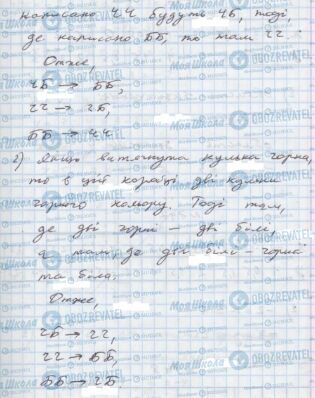 написано ЧЧ будуть ЧБ, тоді,
де написано ББ, то там ЧЧ.
Отже,
ЧБ → ББ,
ЧЧ → ЧБ,
ББ → ЧЧ
2) Якщо витягнута кулька чорна,
то в цій коробці дві кульки
чорного кольору. Тоді там,
де дві чорні – дві білі,
а там, де дві білі – чорна
та біла.
Отже,
ЧБ → ЧЧ,
ЧЧ → ББ,
ББ → ЧБ
Моя Школа
OBOZREVATEL